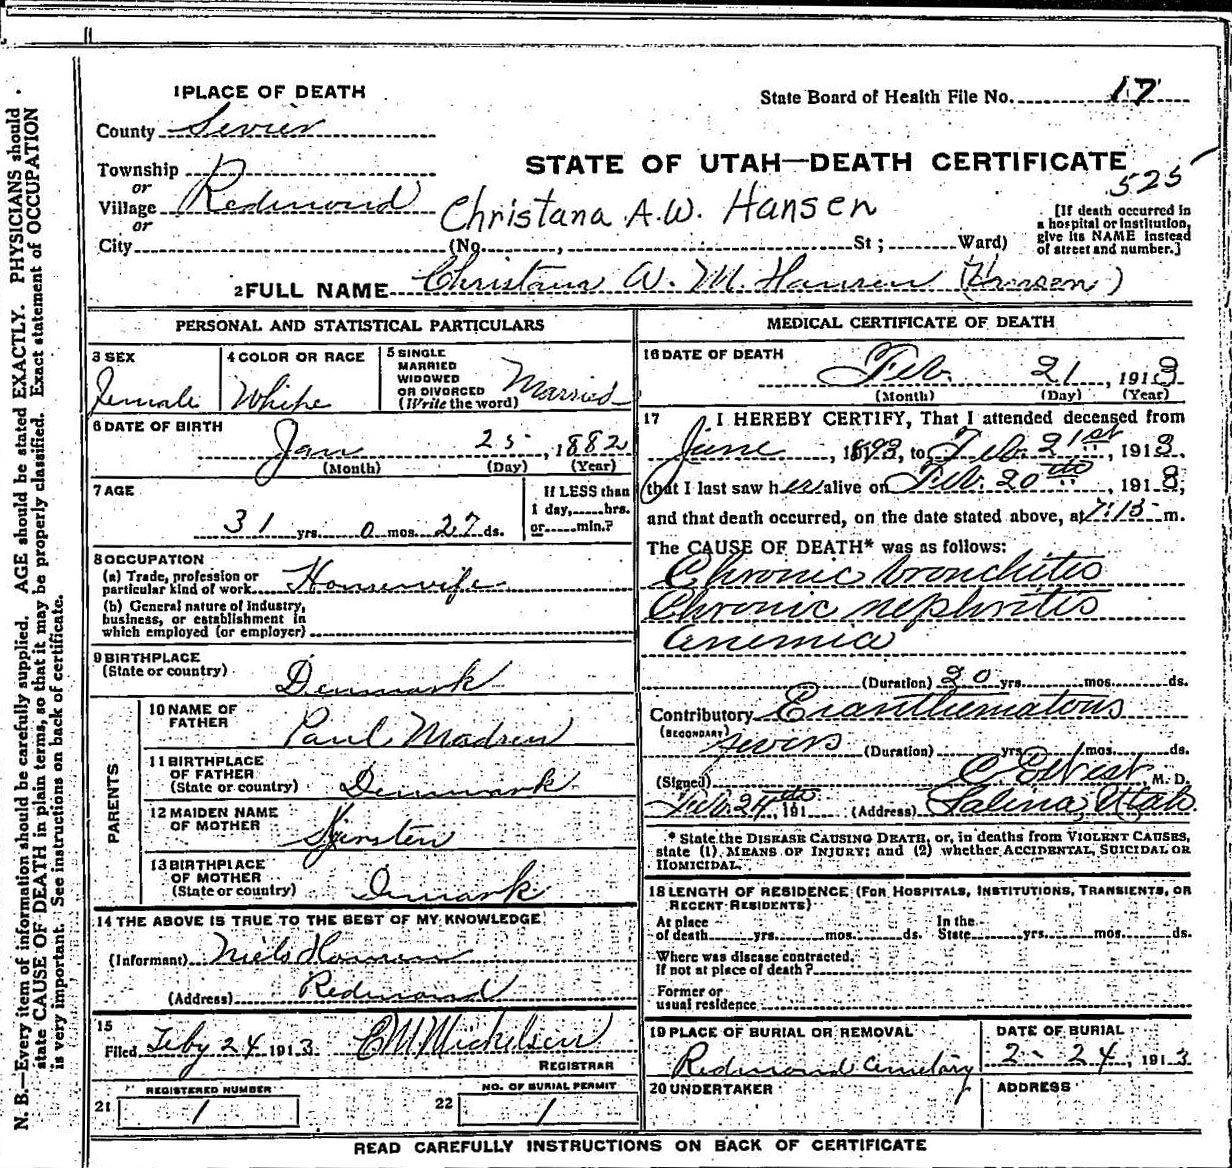 1 PLACE OF DEATH
State Board of Health File No. 17
County Sevier
STATE OF UTAH—DEATH CERTIFICATE
525
Township
or
Village Redmond
or
City
Christana A.W. Hansen
(No. , St ; Ward)
[If death occurred in
a hospital or institution,
give its NAME instead
of street and number.]
2 FULL NAME Christana W. M. Hansen
PERSONAL AND STATISTICAL PARTICULARS
3 SEX
Female
4 COLOR OR RACE
White
5 SINGLE
MARRIED
WIDOWED
OR DIVORCED
(Write the word) Married
6 DATE OF BIRTH
Jan 25, 1882
(Month) (Day) (Year)
7 AGE
31 yrs. 0 mos. 27 ds.
If LESS than
1 day, hrs.
or min.?
8 OCCUPATION
(a) Trade, profession or
particular kind of work Housewife
(b) General nature of industry,
business, or establishment in
which employed (or employer)
9 BIRTHPLACE
(State or country)
Denmark
PARENTS
10 NAME OF
FATHER
Paul Madsen
11 BIRTHPLACE
OF FATHER
(State or country) Denmark
12 MAIDEN NAME
OF MOTHER
13 BIRTHPLACE
OF MOTHER
(State or country) Denmark
14 THE ABOVE IS TRUE TO THE BEST OF MY KNOWLEDGE
(Informant) Niels Hansen
(Address) Redmond
15
Filed Feby 24 1913 E M Mickelsen
REGISTRAR
21 REGISTERED NUMBER
1
22 NO. OF BURIAL PERMIT
1
MEDICAL CERTIFICATE OF DEATH
16 DATE OF DEATH
Feb. 21, 1913
(Month) (Day) (Year)
17 I HEREBY CERTIFY, That I attended deceased from
June , to Feb. 21st, 1913
that I last saw her alive on Feb. 20th, 1913,
and that death occurred, on the date stated above, at 7:15 m.
The CAUSE OF DEATH* was as follows:
Chronic bronchitis
Chronic nephritis
anemia
(Duration) 20 yrs. mos. ds.
Contributory Exanthematous
(SECONDARY) fevers (Duration) yrs. mos. ds.
(Signed) M. D.
Feb. 24th, 191 (Address) Salina, Utah
* State the DISEASE CAUSING DEATH, or, in deaths from VIOLENT CAUSES,
state (1) MEANS OF INJURY; and (2) whether ACCIDENTAL, SUICIDAL OR
HOMICIDAL.
18 LENGTH OF RESIDENCE (FOR HOSPITALS, INSTITUTIONS, TRANSIENTS, OR
RECENT RESIDENTS)
At place
of death yrs. mos. ds.
In the
State yrs. mos. ds.
Where was disease contracted,
If not at place of death?
Former or
usual residence
19 PLACE OF BURIAL OR REMOVAL
Redmond Cemetery
DATE OF BURIAL
2-24, 1913
20 UNDERTAKER
ADDRESS
READ CAREFULLY INSTRUCTIONS ON BACK OF CERTIFICATE
N. B.—Every item of information should be carefully supplied. AGE should be stated EXACTLY. PHYSICIANS should
state CAUSE OF DEATH in plain terms, so that it may be properly classified. Exact statement of OCCUPATION
is very important. See instructions on back of certificate.